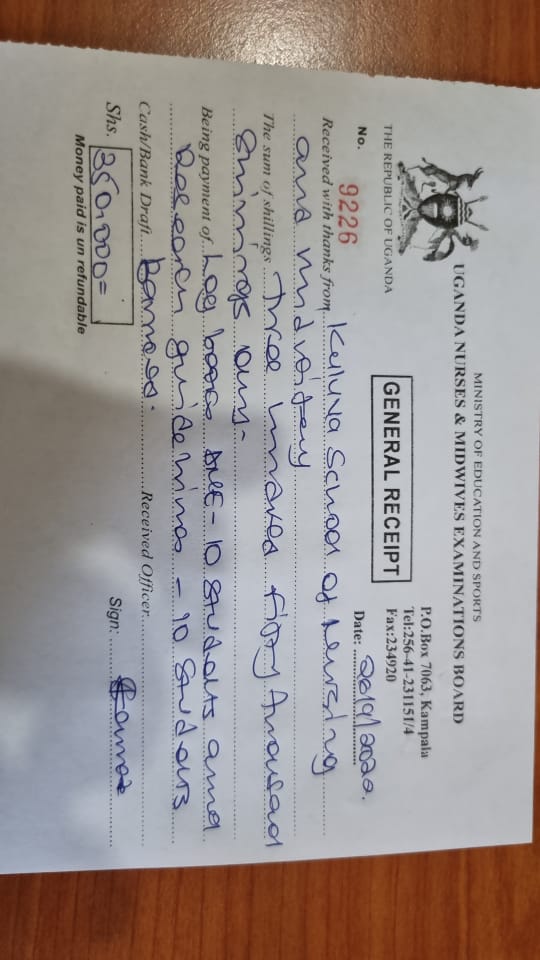 MINISTRY OF EDUCATION AND SPORTS
UGANDA NURSES & MIDWIVES EXAMINATIONS BOARD
P.O.Box 7063, Kampala
Tel:256-41-231151/4
Fax:234920
THE REPUBLIC OF UGANDA
GENERAL RECEIPT
No. 9226
Date:
Received with thanks from Kuluva School of Nursing
and midwifery
The sum of shillings Three hundred fifty thousand
shillings only-
Being payment of Log books - 10 students and
Research guidelines - 10 students
Cash/Bank Draft Received Officer
Shs. 350,000= Sign:
Money paid is un refundable